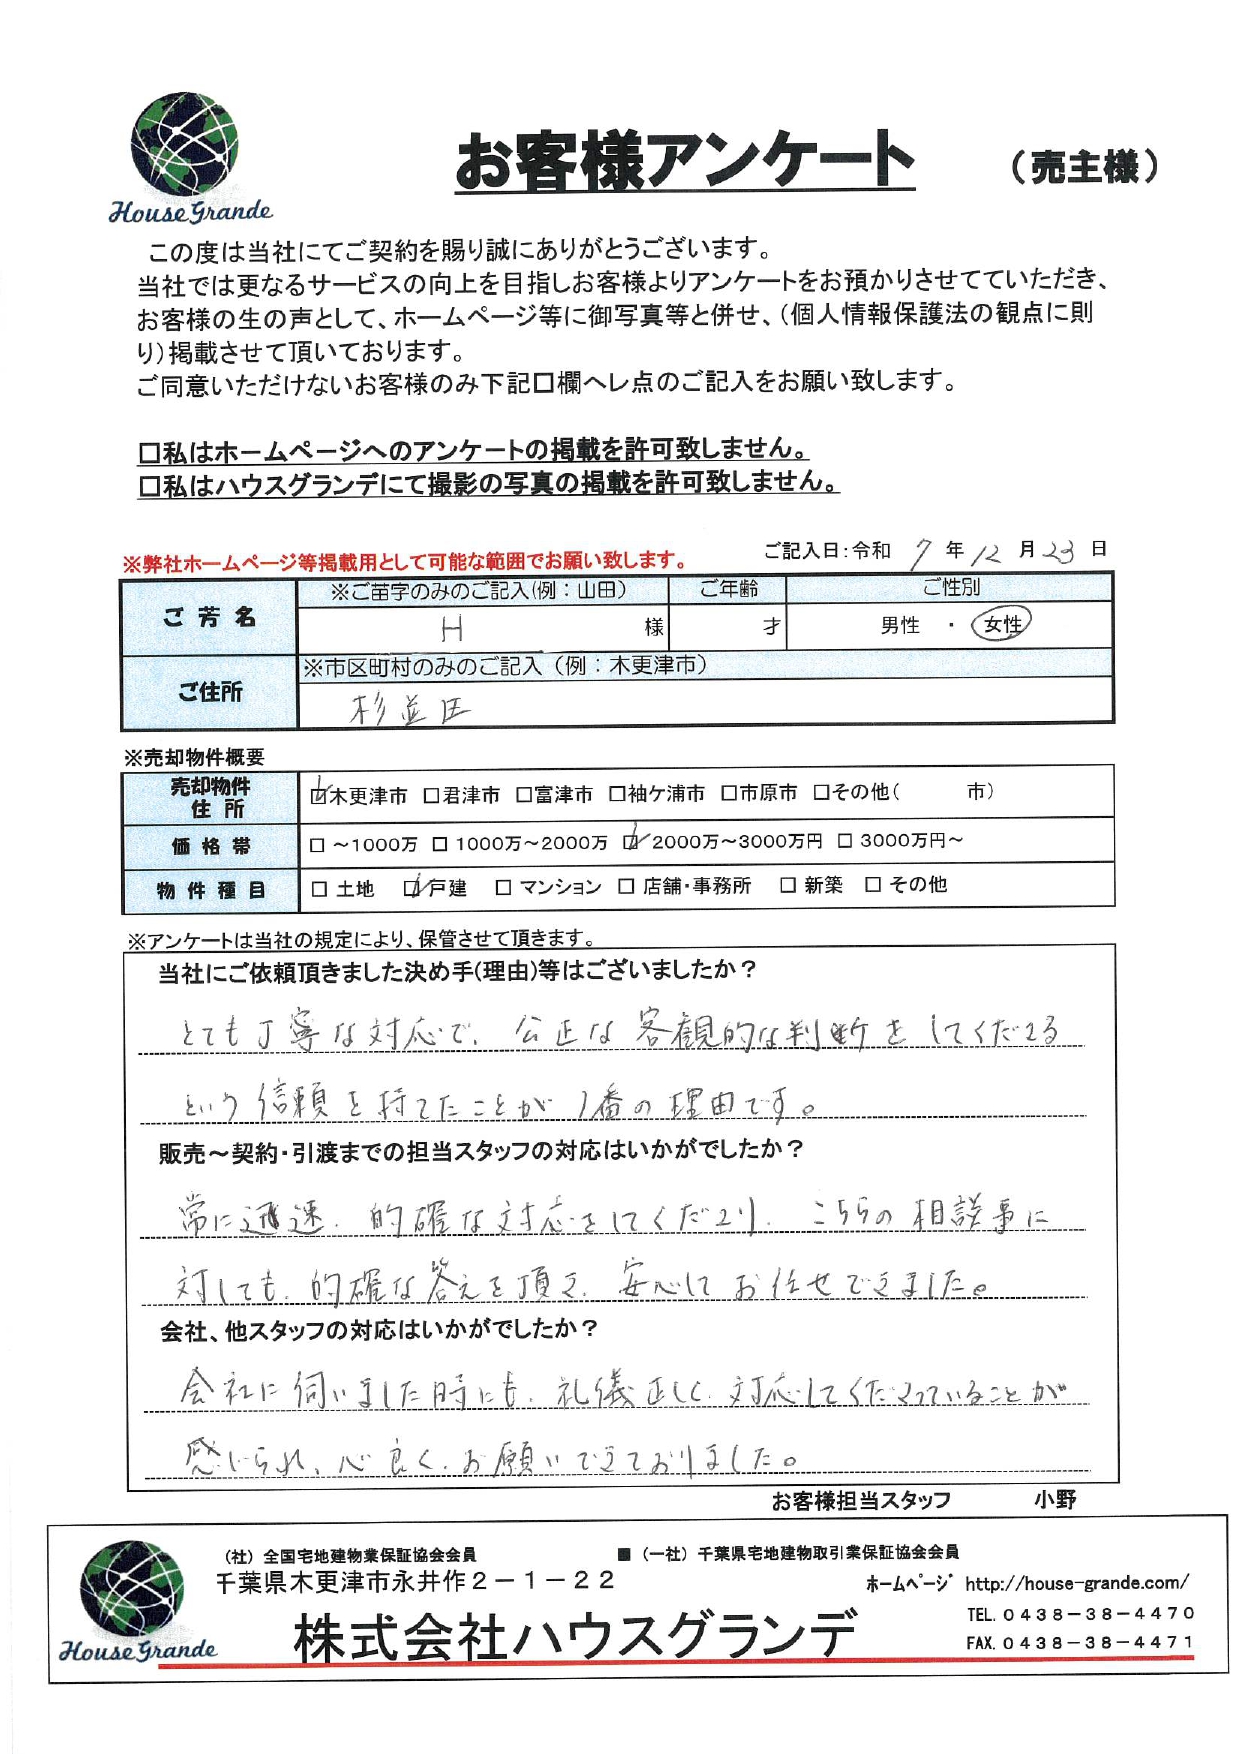 House Grande
お客様アンケート （売主様）
この度は当社にてご契約を賜り誠にありがとうございます。
当社では更なるサービスの向上を目指しお客様よりアンケートをお預かりさせてていただき、
お客様の生の声として、ホームページ等に御写真等と併せ、（個人情報保護法の観点に則
り）掲載させて頂いております。
ご同意いただけないお客様のみ下記口欄へレ点のご記入をお願い致します。
□私はホームページへのアンケートの掲載を許可致しません。
□私はハウスグランデにて撮影の写真の掲載を許可致しません。
ご記入日：令和 7 年 12 月 23 日
※弊社ホームページ等掲載用として可能な範囲でお願い致します。
ご芳名 ※ご苗字のみのご記入（例：山田） ご年齢 ご性別
H 様 才 男性 ・ 女性
ご住所 ※市区町村のみのご記入（例：木更津市）
杉並区
※売却物件概要
売却物件住所 ☑木更津市 □君津市 □富津市 □袖ケ浦市 □市原市 □その他（ 市）
価格帯 □～1000万 □ 1000万～2000万 ☑ 2000万～3000万円 □ 3000万円～
物件種目 □ 土地 ☑戸建 □ マンション □ 店舗・事務所 □ 新築 □ その他
※アンケートは当社の規定により、保管させて頂きます。
当社にご依頼頂きました決め手（理由）等はございましたか？
とても丁寧な対応で、公正な客観的な判断をしてくださる
という信頼を持てたことが1番の理由です。
販売～契約・引渡までの担当スタッフの対応はいかがでしたか？
常に迅速、的確な対応をしてくださり、こちらの相談事に
対しても、的確な答えを頂き、安心してお任せできました。
会社、他スタッフの対応はいかがでしたか？
会社に伺いました時にも、礼儀正しく、対応してくださっていることが
感じられ、心良く、お願いできておりました。
お客様担当スタッフ 小野
（社）全国宅地建物業保証協会会員 ■（一社）千葉県宅地建物取引業保証協会会員
千葉県木更津市永井作２－１－２２ ホームページ http://house-grande.com/
株式会社ハウスグランデ
TEL. ０４３８－３８－４４７０
FAX. ０４３８－３８－４４７１
House Grande